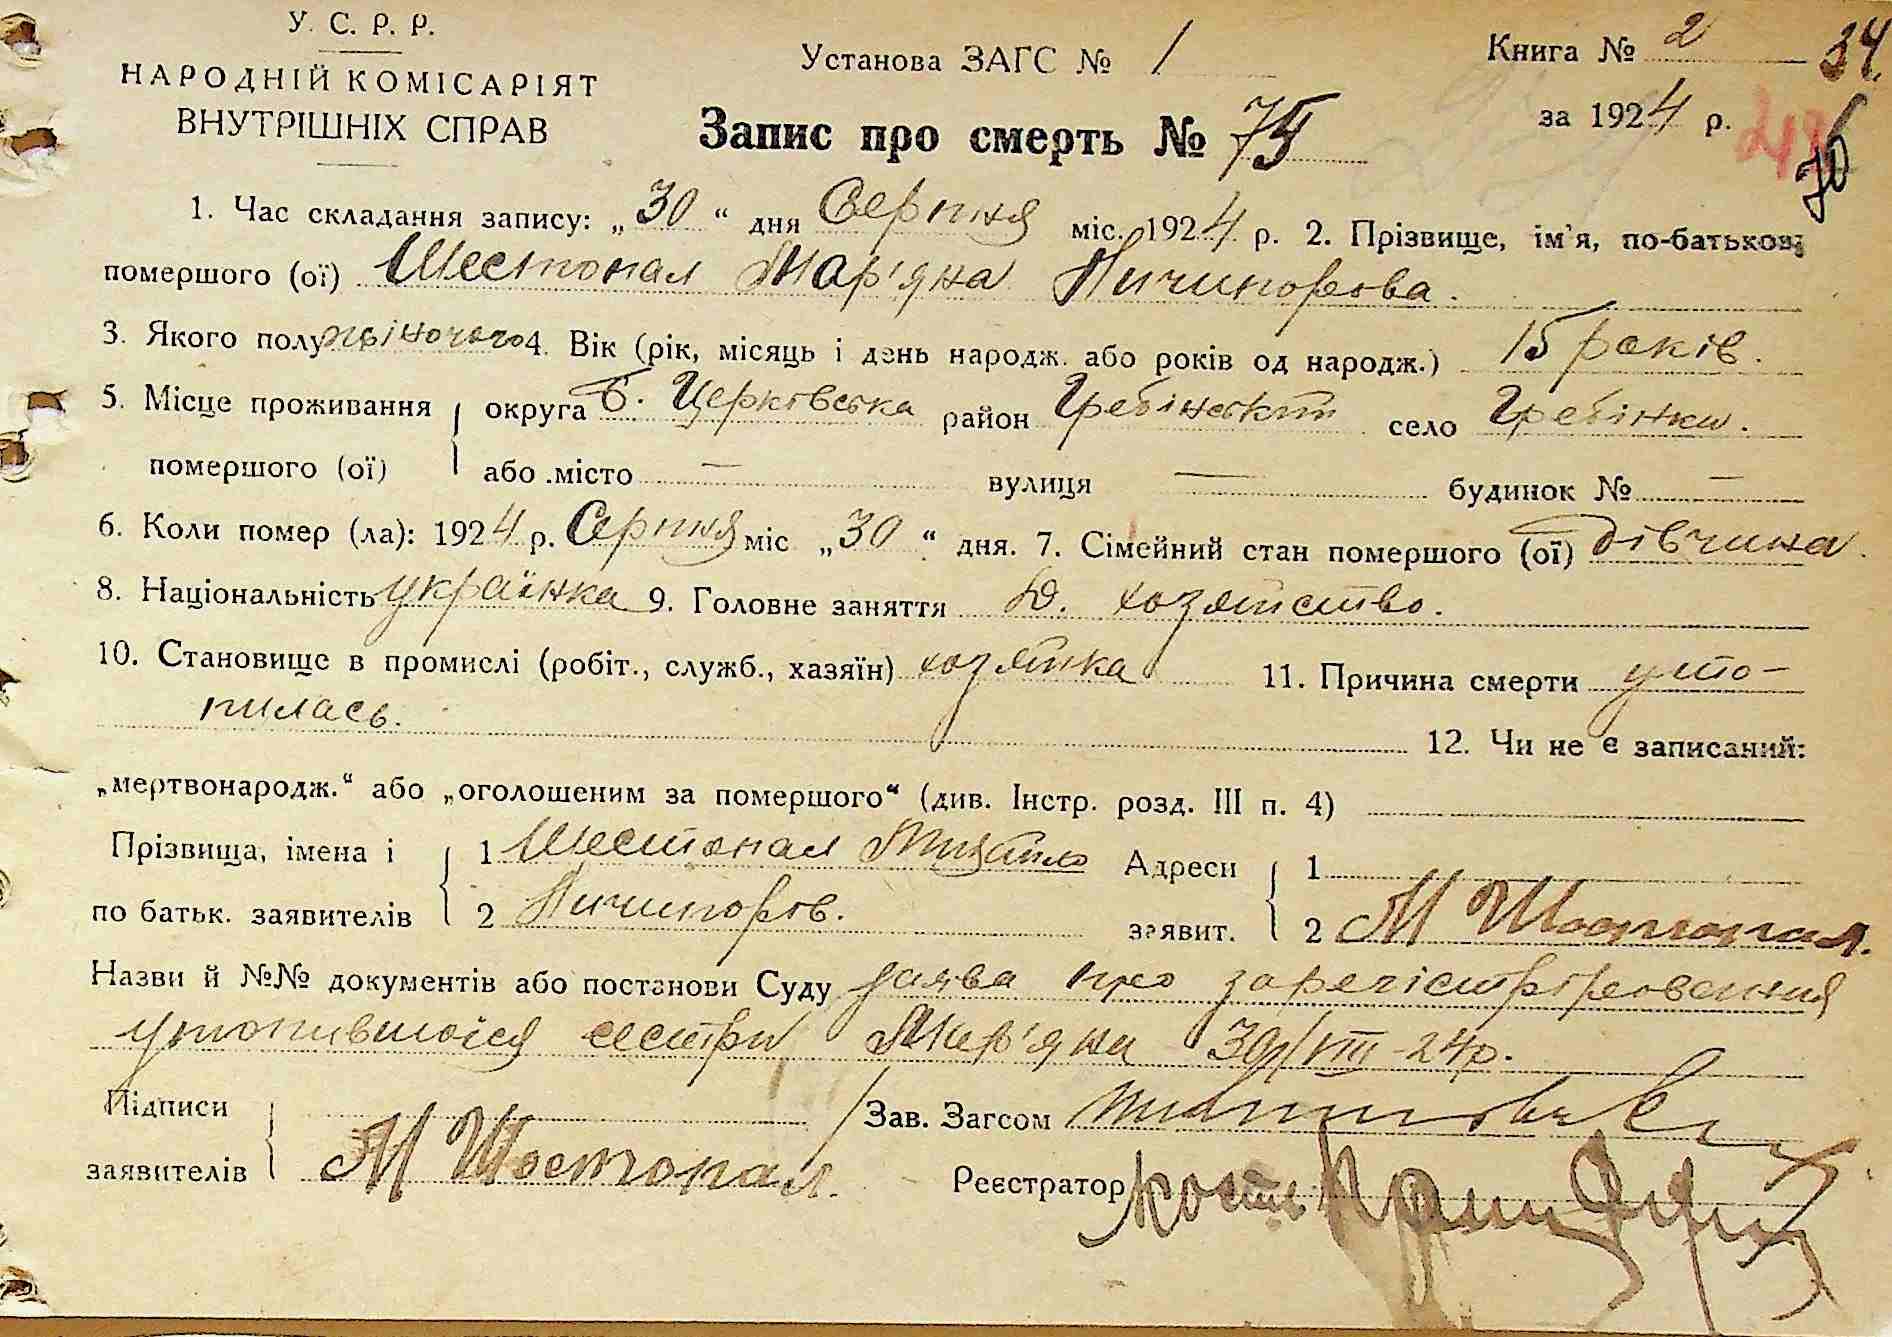 У. С. Р. Р.
НАРОДНІЙ КОМІСАРІЯТ
ВНУТРІШНІХ СПРАВ
Установа ЗАГС № 1
Книга № 2 34.
за 1924 р.
Запис про смерть № 75
76
1. Час складання запису: „30“ дня Серпня міс. 1924 р. 2. Прізвище, ім'я, по-батькові
помершого (ої) Шестопал Мар'яна Ничипорова.
3. Якого полу жіночого 4. Вік (рік, місяць і день народж. або років од народж.) 15 років.
5. Місце проживання округа Б. Церківська район Гребінський село Гребінки.
помершого (ої) або місто — вулиця — будинок № —
6. Коли помер (ла): 1924 р. Серпня міс „30“ дня. 7. Сімейний стан помершого (ої) дівчина.
8. Національність українка 9. Головне заняття д. хозяйство.
10. Становище в промислі (робіт., служб., хазяїн) хозяйка 11. Причина смерти уто-
пилась.
12. Чи не є записаний:
„мертвонародж.“ або „оголошеним за помершого“ (див. Інстр. розд. III п. 4)
Прізвища, імена і 1 Шестопал Михайло Адреси 1
по батьк. заявителів 2 Ничипоров. заявит. 2 М Шостопал.
Назви й №№ документів або постанови Суду заява про зарегістріровання
утопившоїся сестри Мар'яна 30/VIII-24р.
Підписи
заявителів М Шостопал.
Зав. Загсом
Реєстратор Кость